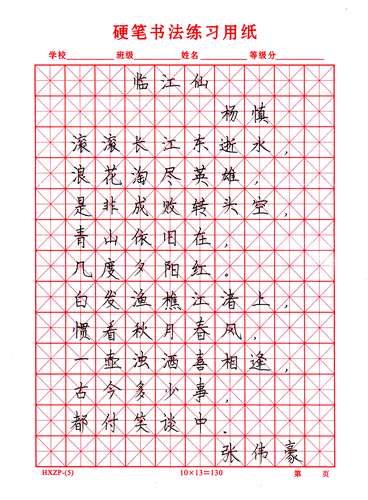 硬笔书法练习用纸
学校 班级 姓名 等级分
临江仙
杨慎
滚滚长江东逝水，
浪花淘尽英雄，
是非成败转头空，
青山依旧在，
几度夕阳红。
白发渔樵江渚上，
惯看秋月春风，
一壶浊酒喜相逢，
古今多少事，
都付笑谈中。
张伟豪
HXZP-(5) 10×13=130 第 页